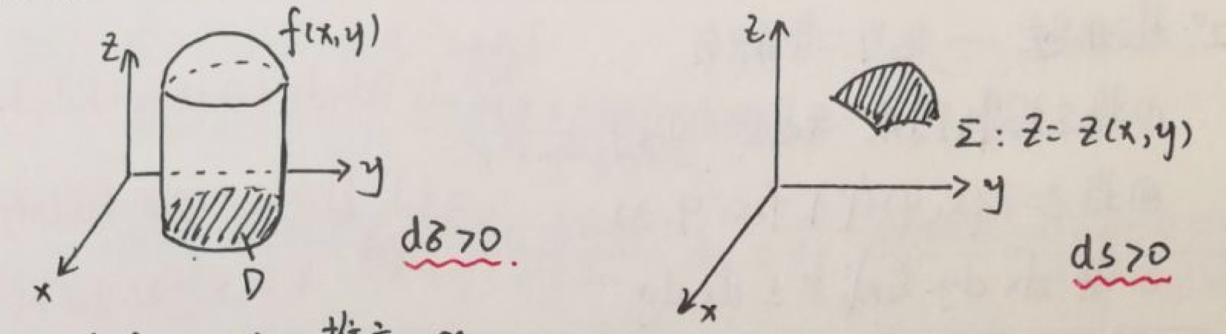 z
f(x,y)
y
x
D
dσ>0.
z
Σ: z = z(x,y)
y
x
ds>0